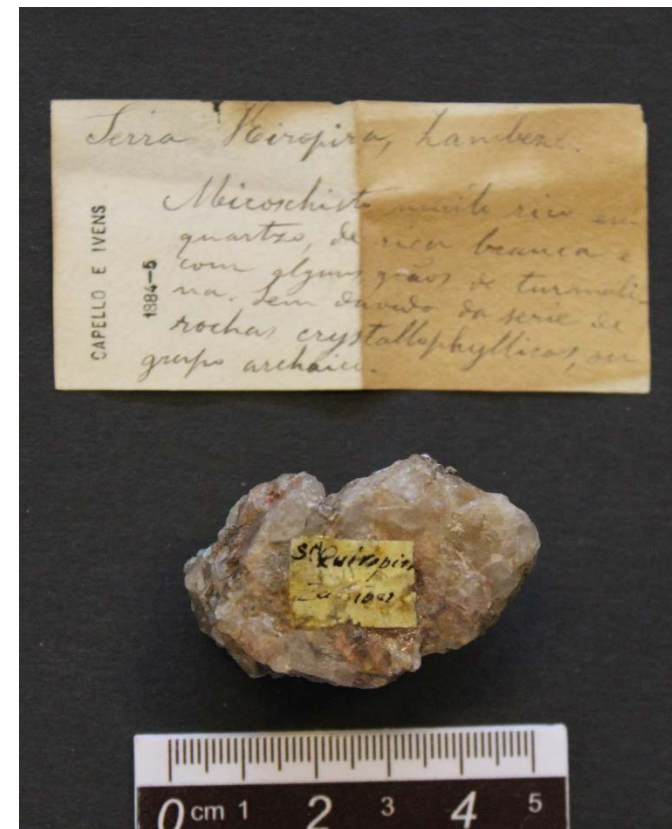 Serra Kiropira, Zambeze.
CAPELLO E IVENS
1884-5
Micoschisto muito rico em
quartzo, de mica branca e
com alguns grãos de turmali-
na. Sem duvida da serie de
rochas crystallophyllicas, ou
grupo archaico.
Sª Quiropira
0 cm 1 2 3 4 5